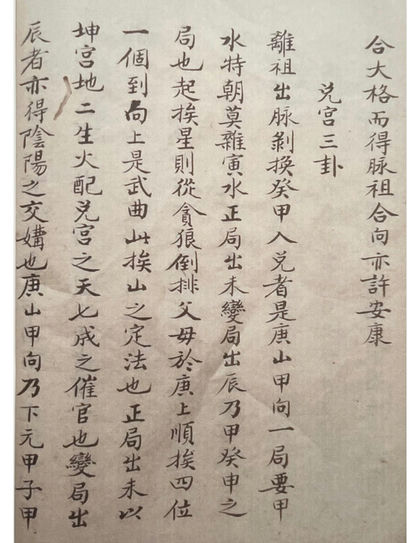 合大格而得脉祖合向亦許安康
兑宮三卦
離祖出脉剝換癸甲入兑者是庚山甲向一局要甲
水特朝莫雜寅水正局出未變局出辰乃甲癸申之
局也起挨星則從貪狼倒排父毋於庚上順挨四位
一個到向上是武曲此挨山之定法也正局出未以
坤宮地二生火配兑宮之天七成之催官也變局出
辰者亦得陰陽之交媾也庚山甲向乃下元甲子甲